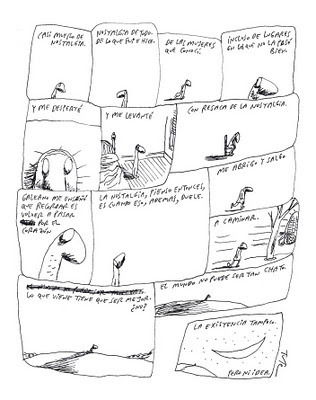 CASI MUERO DE
NOSTALGIA.
NOSTALGIA DE TODO.
DE LO QUE FUI E HICE.
DE LAS MUJERES
QUE CONOCÍ
INCLUSO DE LUGARES
EN LOS QUE NO LA PASÉ
BIEN.
Y ME DESPERTÉ
Y ME LEVANTÉ
CON RESACA DE LA NOSTALGIA.
ME ABRIGO Y SALGO
GALEANO ME ENSEÑÓ
QUE RECORDAR ES
VOLVER A PASAR
POR EL
CORAZÓN
LA NOSTALGIA, PIENSO ENTONCES,
ES CUANDO ESO, ADEMÁS, DUELE.
A CAMINAR.
LO QUE VIENE TIENE QUE SER MEJOR.
¿NO?
EL MUNDO NO PUEDE SER TAN CHATO.
LA EXISTENCIA TAMPOCO.
PERO NI IDEA.